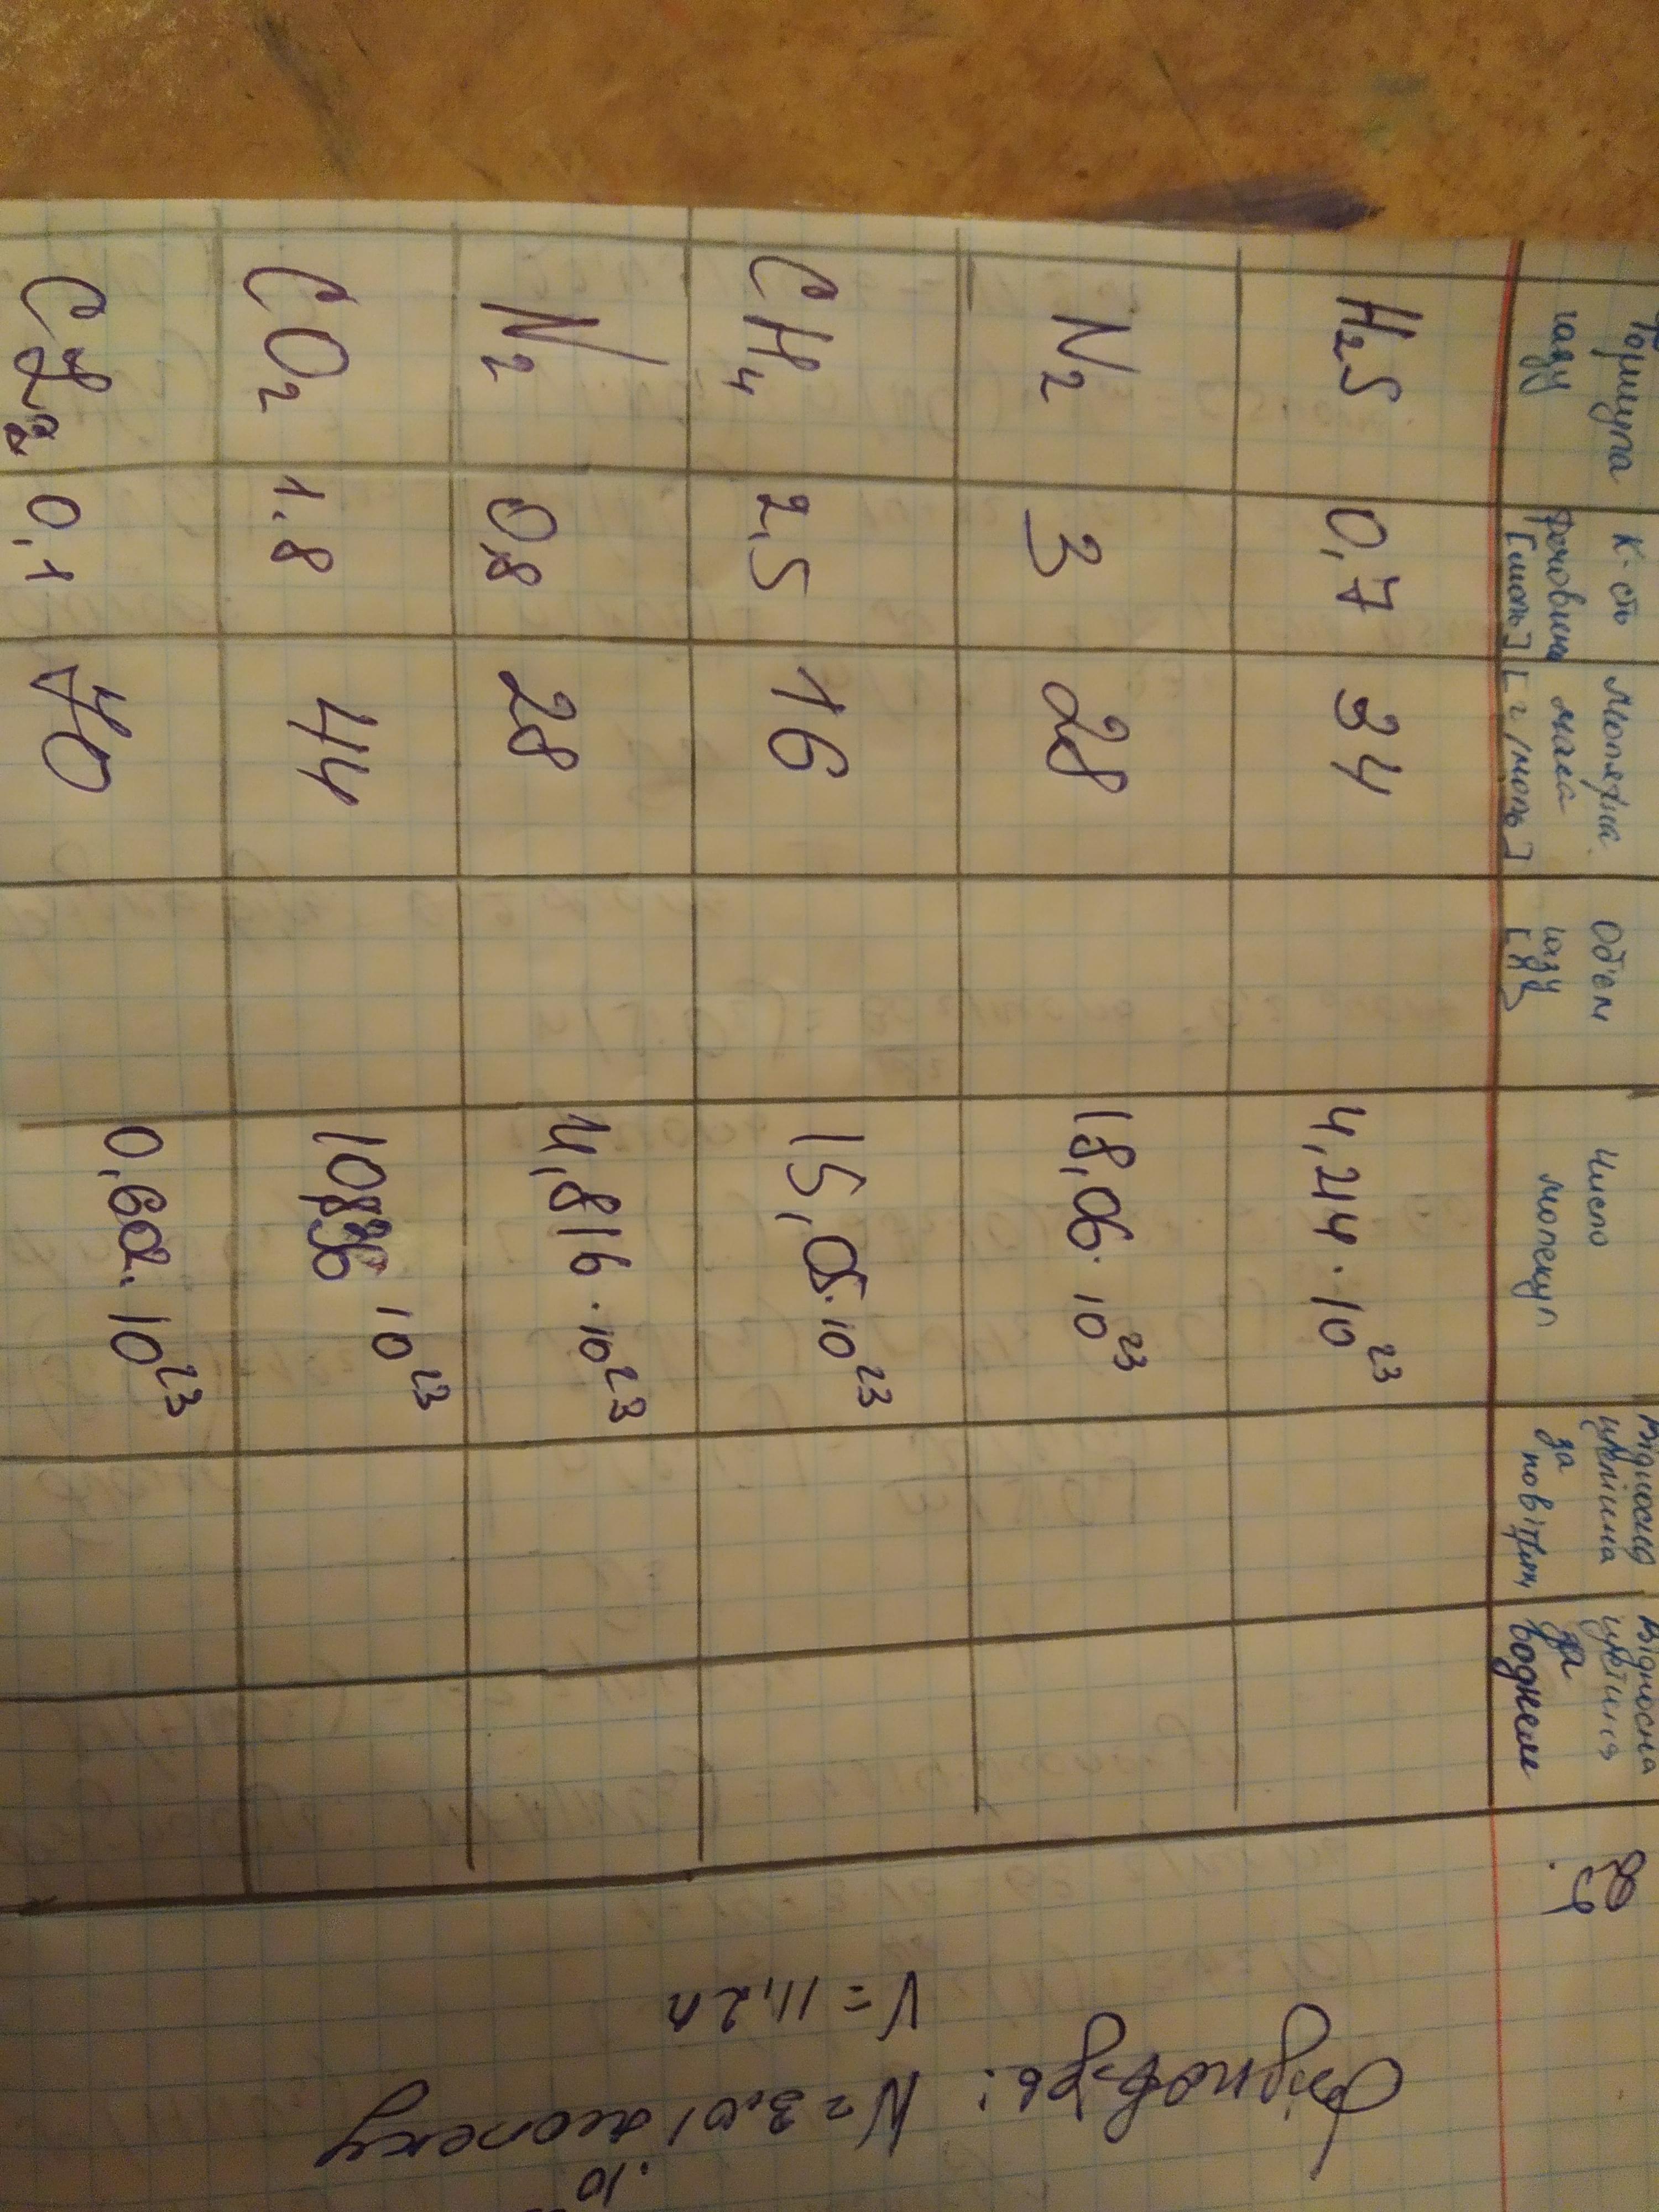 Формула газу
К-сть речовини [моль]
Молярна маса [г/моль]
Об'єм газу [л]
Число молекул
Відносна щільніна за повітрям
Відносна щільніна за воднем
H₂S 0,7 34 4,214 · 10²³
N₂ 3 28 18,06 · 10²³
CH₄ 2,5 16 15,05 · 10²³
N₂ 0,8 28 4,816 · 10²³
CO₂ 1.8 44 10,836 10²³
0,1 0,602 · 10²³
Відповідь: N = 3,01 · 10 молеку
V = 11,2л